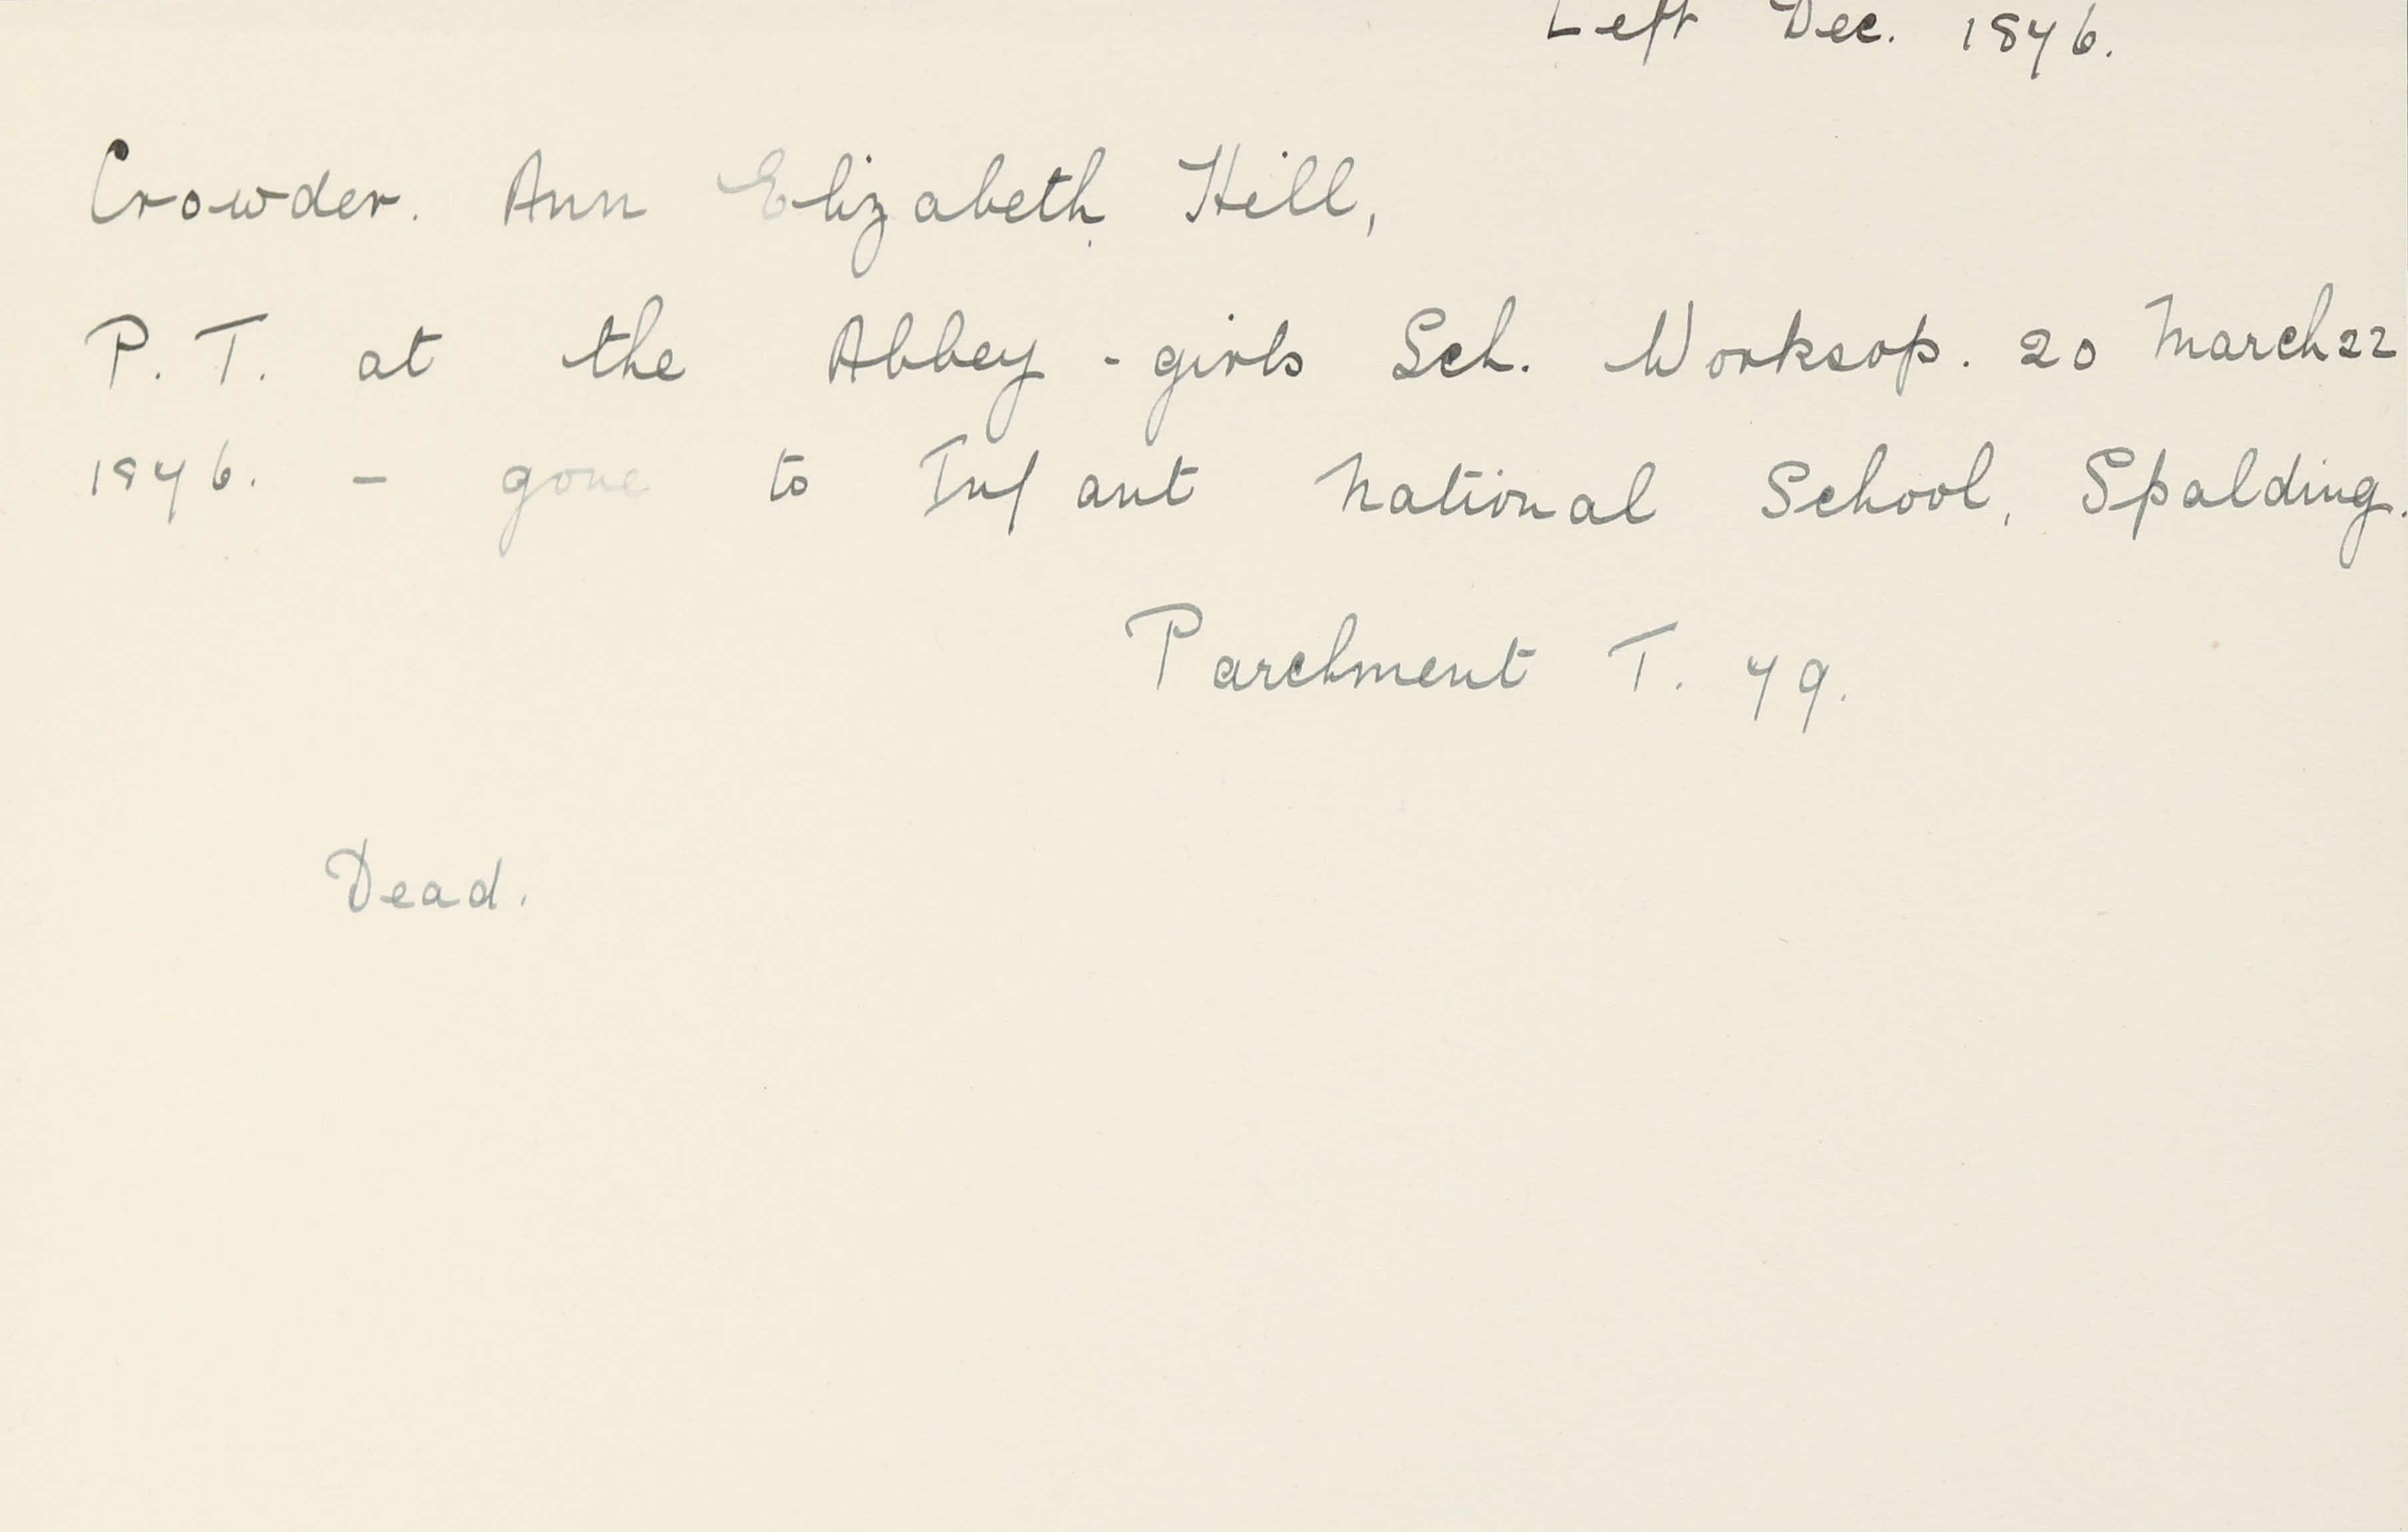 Left Dec. 1846.
Crowder. Ann Elizabeth Hill,
P. T. at the Abbey - girls Sch. Worksop. 20 March 22
1846. - gone to Infant National School, Spalding.
Parchment T. 49.
Dead.